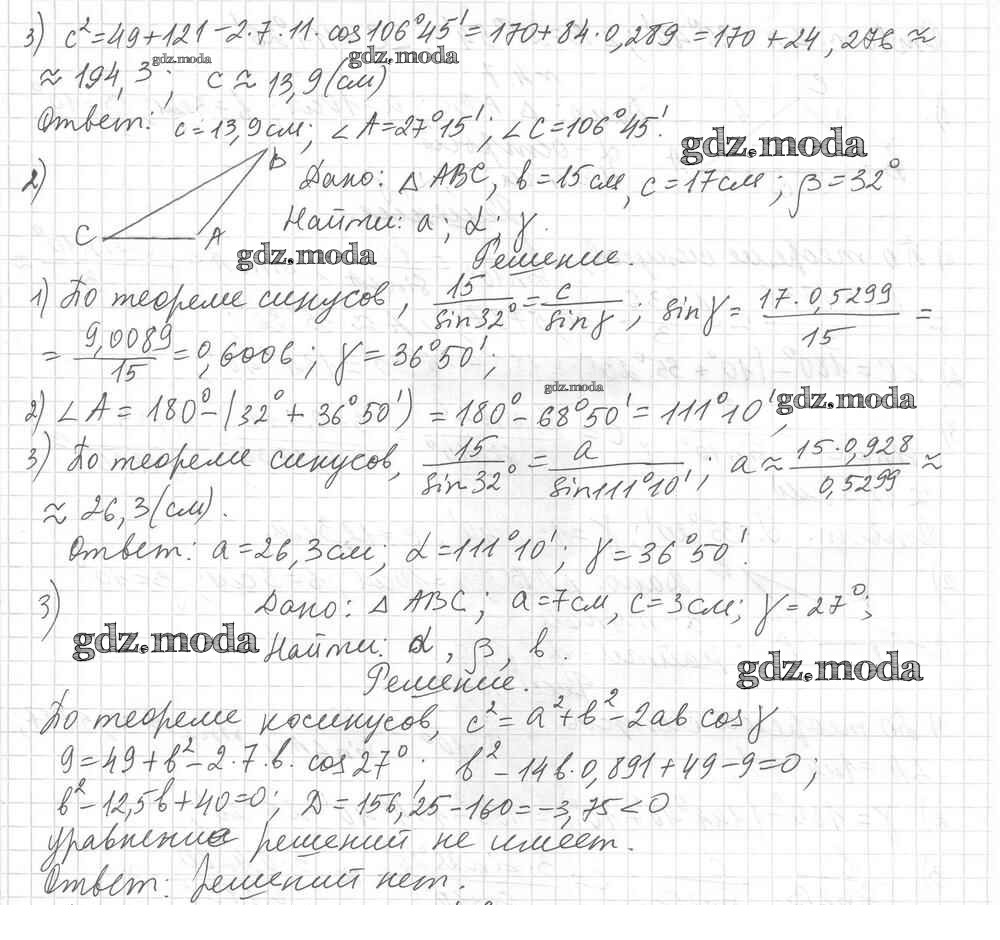 3) c²=49+121-2·7·11·cos106°45'=170+84·0,289=170+24,276≈
gdz.moda
gdz.moda
≈194,3; c≈13,9(см)
Ответ: c=13,9см; ∠A=27°15'; ∠C=106°45'.
gdz.moda
2) B Дано: △ABC, b=15см, c=17см; β=32°
Найти: a; α; γ.
C A
gdz.moda
Решение.
1) По теореме синусов, 15/sin32°=c/sinγ; sinγ=17·0,5299/15=
=9,0089/15=0,6006; γ=36°50';
gdz.moda
2) ∠A=180°-(32°+36°50')=180°-68°50'=111°10';
gdz.moda
3) По теореме синусов, 15/sin32°=a/sin111°10'; a≈15·0,928/0,5299≈
≈26,3(см).
Ответ: a=26,3см; α=111°10'; γ=36°50'.
3) Дано: △ABC; a=7см, c=3см; γ=27°;
gdz.moda
Найти: α, β, b.
gdz.moda
Решение.
По теореме косинусов, c²=a²+b²-2ab cosγ
9=49+b²-2·7·b·cos27°; b²-14b·0,891+49-9=0;
b²-12,5b+40=0; D=156,25-160=-3,75<0
уравнение решений не имеет.
Ответ: решений нет.